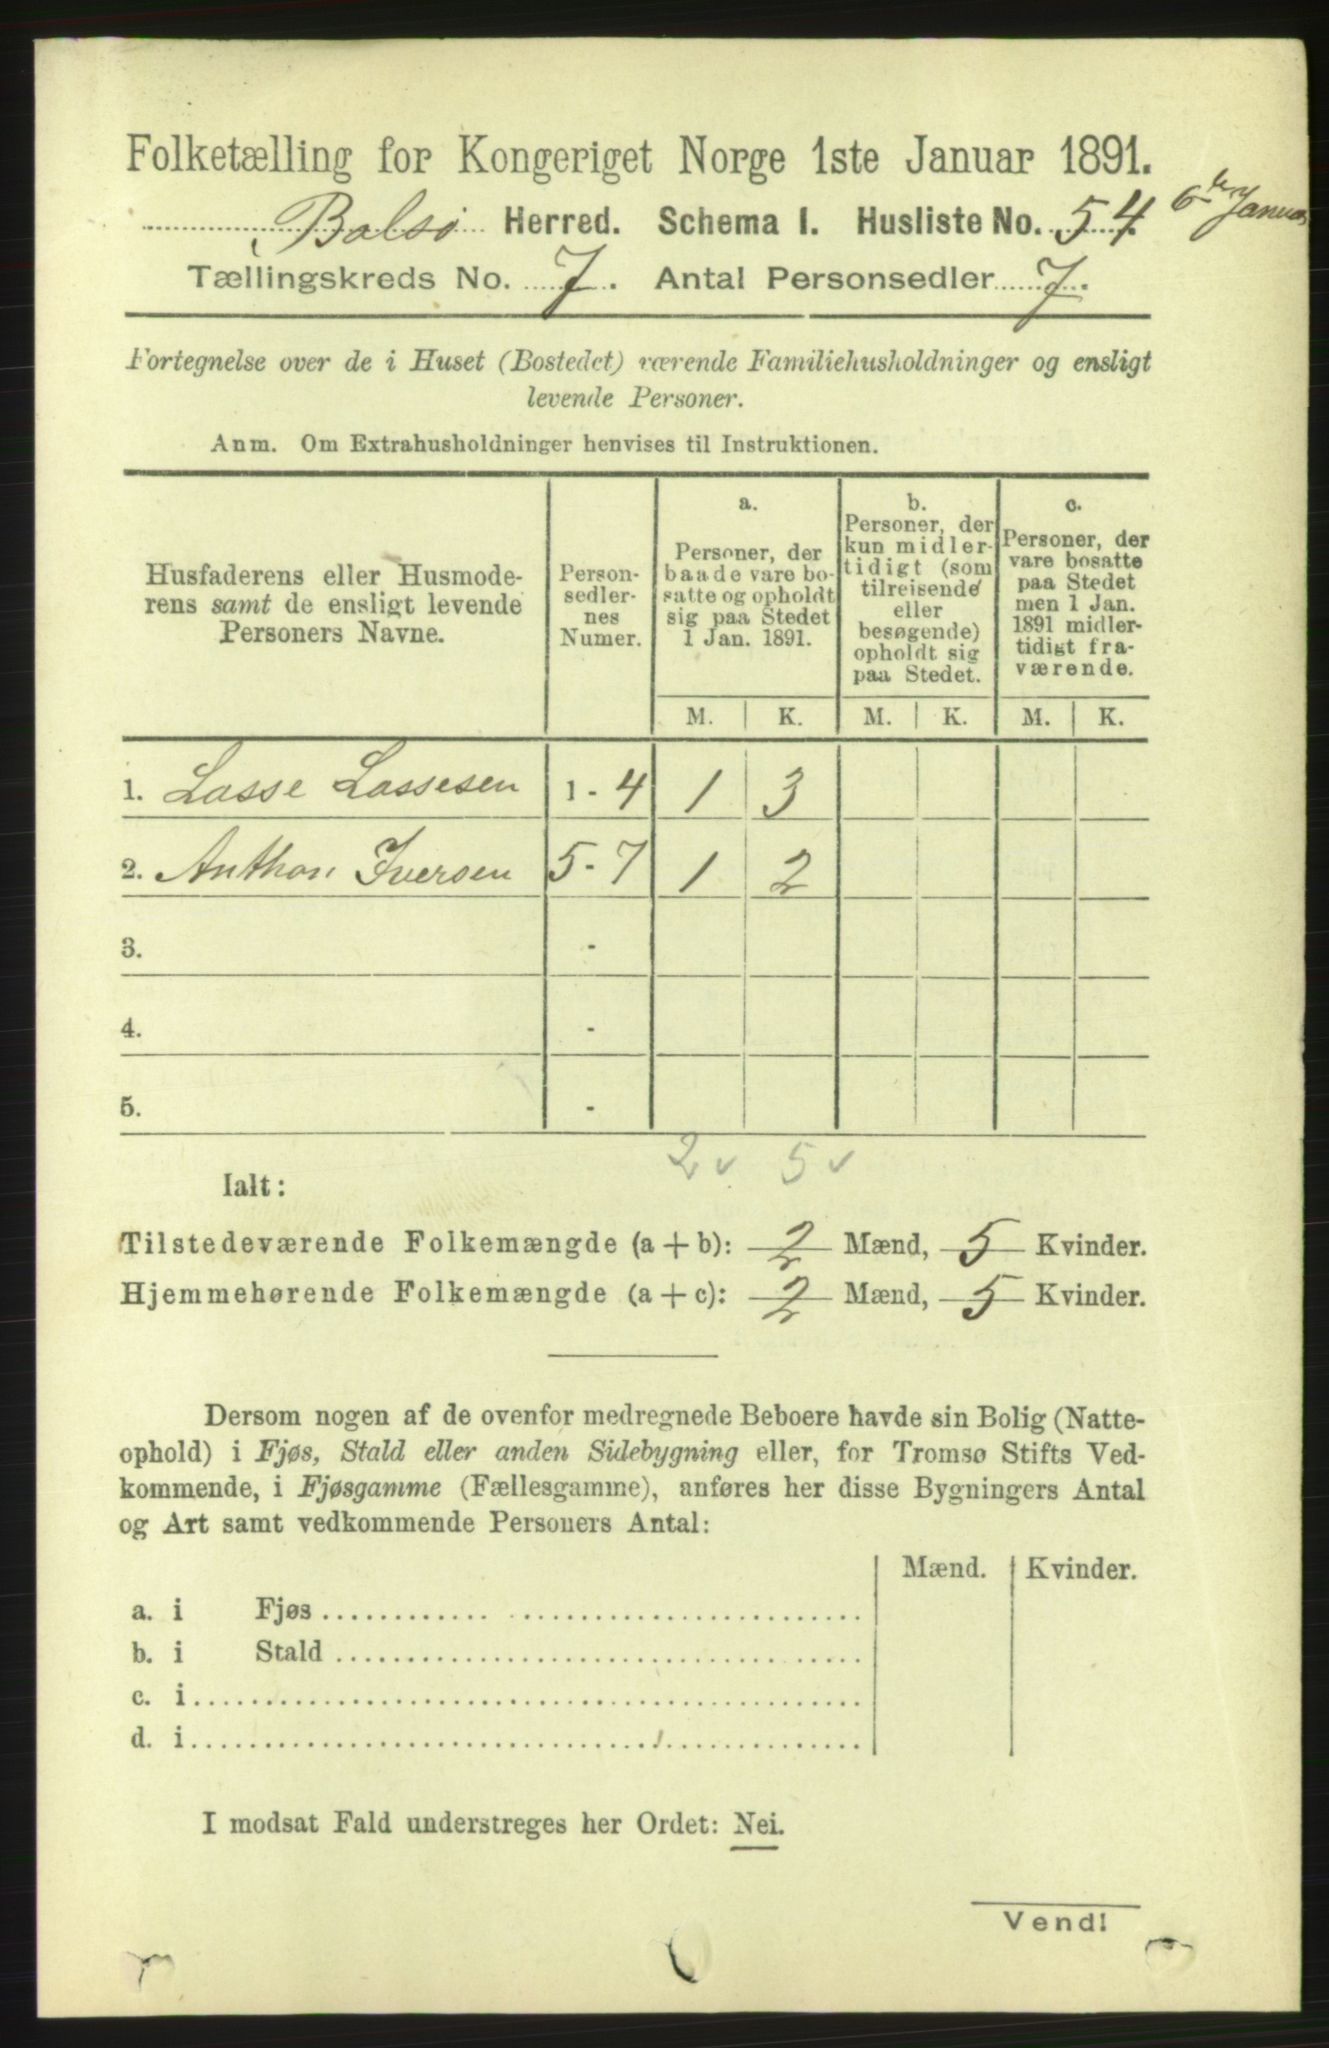 Folketælling for Kongeriget Norge 1ste Januar 1891.
6te Januar
Balsø Herred. Schema I. Husliste No. 54.
Tællingskreds No. 7. Antal Personsedler 7.
Fortegnelse over de i Huset (Bostedet) værende Familiehusholdninger og ensligt
levende Personer.
Anm. Om Extrahusholdninger henvises til Instruktionen.
Husfaderens eller Husmode-
rens samt de ensligt levende
Personers Navne.
Person-
sedler-
nes
Numer.
a.
Personer, der
baade vare bo-
satte og opholdt
sig paa Stedet
1 Jan. 1891.
b.
Personer, der
kun midler-
tidigt (som
tilreisende
eller
besøgende)
opholdt sig
paa Stedet.
c.
Personer, der
vare bosatte
paa Stedet
men 1 Jan.
1891 midler-
tidigt fra-
værende.
M. K. M. K. M. K.
1. Lasse Lassesen 1 - 4 1 3
2. Anthon Iversen 5 - 7 1 2
3. -
4. -
5. -
2 v 5 v
Ialt:
Tilstedeværende Folkemængde (a + b): 2 Mænd, 5 Kvinder.
Hjemmehørende Folkemængde (a + c): 2 Mænd, 5 Kvinder.
Dersom nogen af de ovenfor medregnede Beboere havde sin Bolig (Natte-
ophold) i Fjøs, Stald eller anden Sidebygning eller, for Tromsø Stifts Ved-
kommende, i Fjøsgamme (Fællesgamme), anføres her disse Bygningers Antal
og Art samt vedkommende Personers Antal:
Mænd. Kvinder.
a. i Fjøs
b. i Stald
c. i
d. i
I modsat Fald understreges her Ordet: Nei.
Vend!